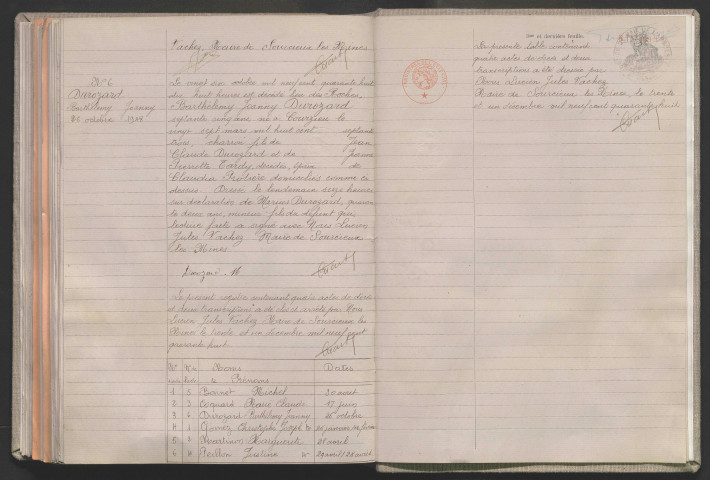 Vachez, Maire de Sourcieux les Mines
N° 6
Durozard
Barthélemy Joanny
26 octobre 1948
Le vingt six octobre mil neuf cent quarante huit
huit heures est décédé lieu des Roches,
Barthélemy Joanny Durozard
septante cinq ans né à Courzieu le
vingt sept mars mil huit cent septante
trois, charron fils de Jean
Claude Durozard et de Jeanne
Pierrette Tardy, décédés, époux de
Claudia Protière domiciliés comme ci
dessus. Dressé le lendemain seize heures
sur déclaration de Marius Durozard, quaran
te deux ans, mineur fils du défunt qui
lecture faite a signé avec Nous Lucien
Jules Vachez Maire de Sourcieux
les Mines
Durozard M
Le présent registre contenant quatre actes de décès
et deux transcriptions a été clos et arrêté par Nous
Lucien Jules Vachez Maire de Sourcieux les
Mines le trente et un décembre mil neuf cent
quarante huit.
Noms
et Prénoms
Dates
1 5 Michel 30 août
2 3 Coquard Claude 17 juin
3 6 Durozard Barthélemy Joanny 26 octobre
4 1 Christophe Joseph
5 2 Marguerite avril
6 4 Justine
2me et dernière feuille.
La présente table contenant
quatre actes de décès et deux
transcriptions a été dressée par
Nous Lucien Jules Vachez
Maire de Sourcieux les Mines le trente
et un décembre mil neuf cent quarante huit